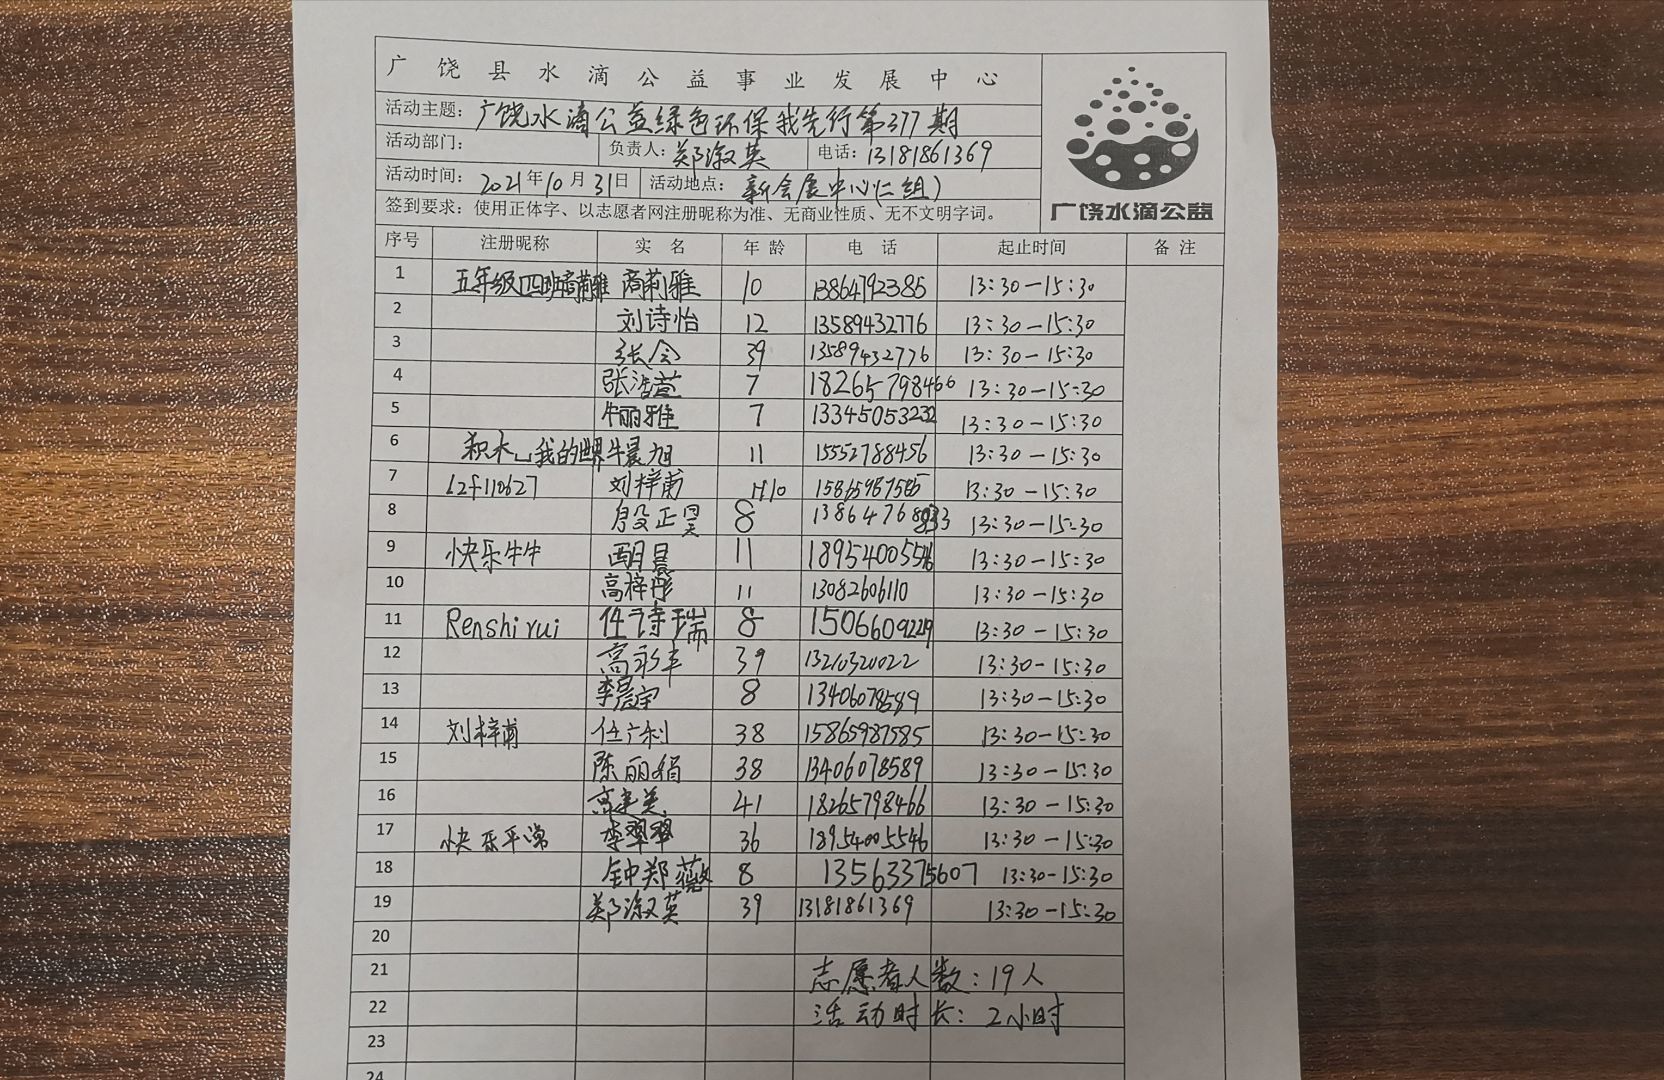 广饶县水滴公益事业发展中心
活动主题：广饶水滴公益绿色环保我先行第377期
活动部门： 负责人：郑淑英 电话：13181861369
活动时间：2021年10月31日 活动地点：新会展中心（二组）
签到要求：使用正体字、以志愿者网注册昵称为准、无商业性质、无不文明字词。
广饶水滴公益
序号 注册昵称 实名 年龄 电话 起止时间 备注
1 五年级四班商莉雅 商莉雅 10 13864792385 13:30-15:30
2 刘诗怡 12 13589432776 13:30-15:30
3 张会 39 13589432776 13:30-15:30
4 张浩萱 7 18265798466 13:30-15:30
5 牛丽雅 7 13345053232 13:30-15:30
6 积木、我的世界 牛晨旭 11 15552788456 13:30-15:30
7 lzf110627 刘梓甫 10 15865987585 13:30-15:30
8 段正昊 8 13:30-15:30
9 快乐牛牛 11 18954005546 13:30-15:30
10 高梓彤 11 13082606110 13:30-15:30
11 Renshirui 任诗瑞 8 15066092229 13:30-15:30
12 高永丰 39 13210320022 13:30-15:30
13 李晨宇 8 13406078589 13:30-15:30
14 刘梓甫 任广利 38 15865987585 13:30-15:30
15 陈丽娟 38 13406078589 13:30-15:30
16 高建美 41 18265798466 13:30-15:30
17 快乐平常 李翠翠 36 18954005546 13:30-15:30
18 钟郑薇 8 13563375607 13:30-15:30
19 郑淑英 39 13181861369 13:30-15:30
20
21 志愿者人数：19人
22 活动时长：2小时
23
24